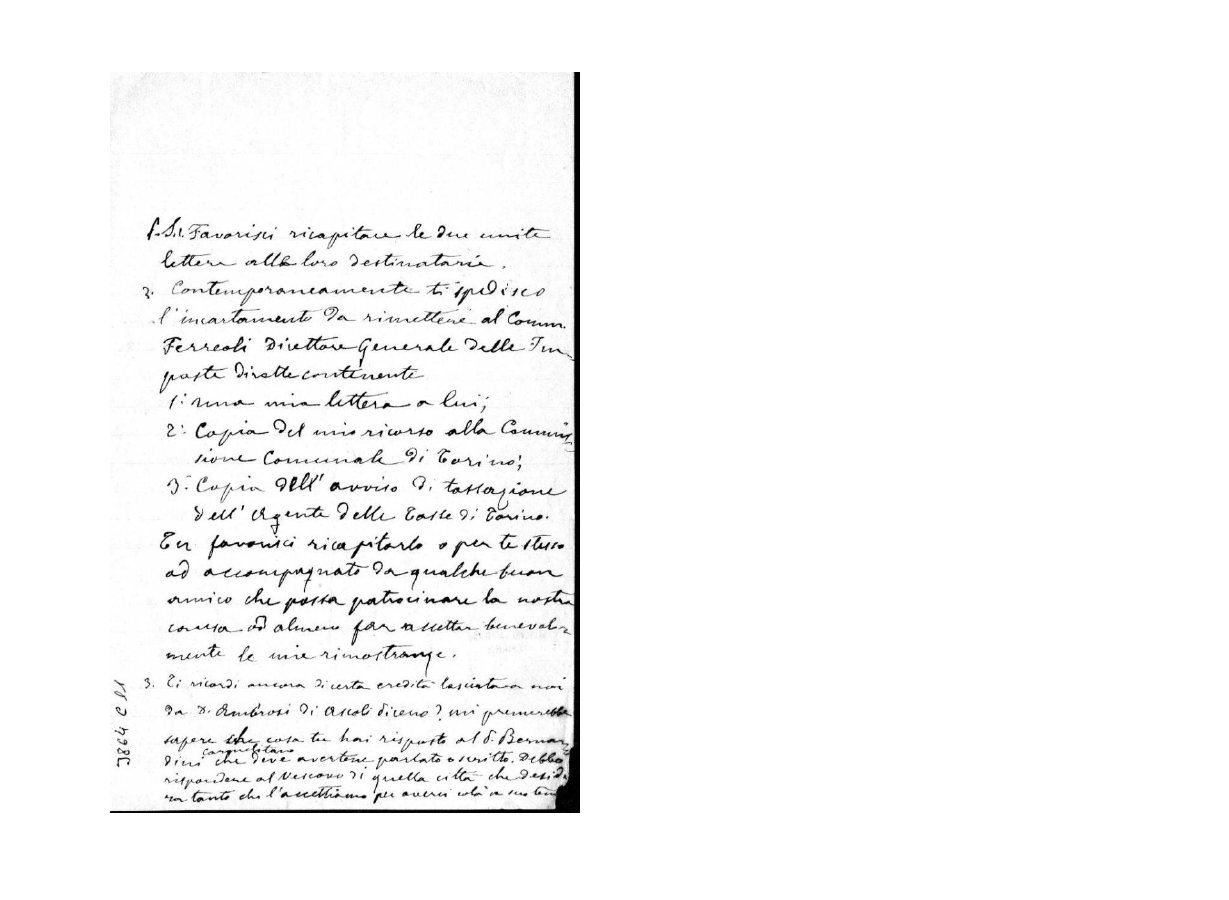 P.S. 1. Favorisci ricapitare le due unite
lettere alle loro destinatarie.
2. Contemporaneamente ti spedisco
l'incartamento da rimettere al Comm.
Ferreoli Direttore Generale delle Im-
poste dirette contenente
1.° una mia lettera a lui;
2.° Copia del mio ricorso alla Commis
sione Comunale di Torino;
3.° Copia dell'avviso di tassazione
dell'Agente delle Tasse di Torino.
Tu favorisci ricapitarlo o per te stesso
od accompagnato da qualche buon
amico che possa patrocinare la nostra
causa od almeno far accettar benevol-
mente le mie rimostranze.
3. Ti ricordi ancora di certa eredità lasciata a noi
da D. Ambrosi di Ascoli Piceno? mi premerebbe
sapere che cosa tu hai risposto al P. Bernar
dini carmelitano che deve avertene parlato o scritto. Debbo
rispondere al Vescovo di quella città che deside
ra tanto che l'accettiamo per averci colà a suo
3864 C 11